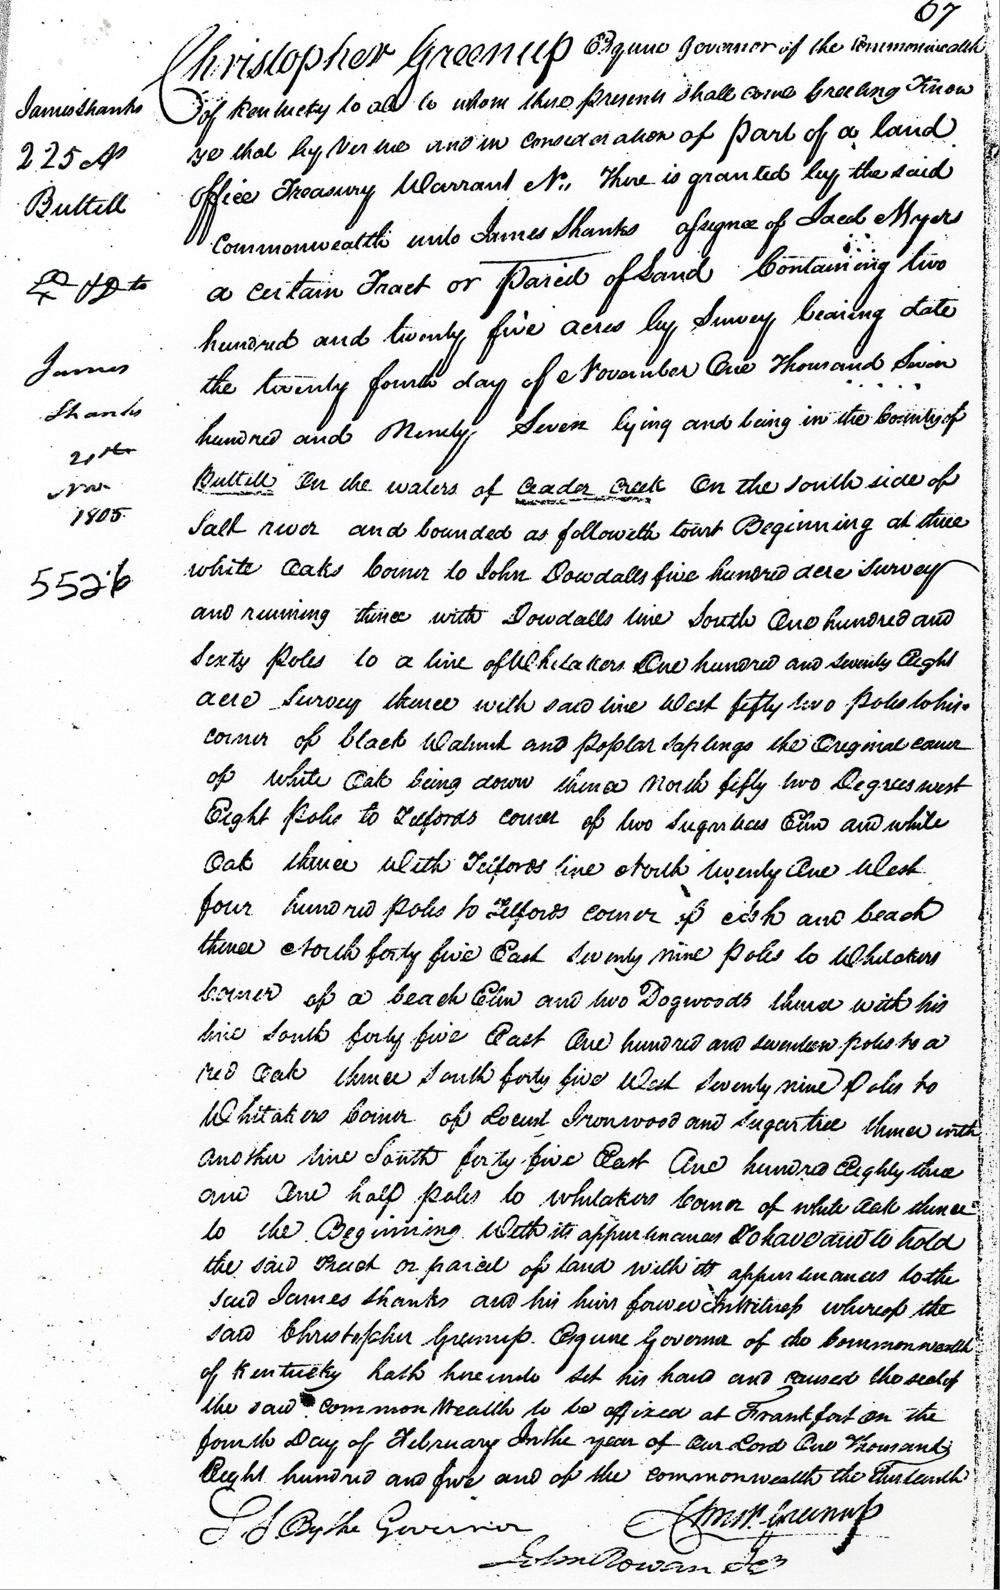 67
Christopher Greenup Esquire Governor of the Commonwealth
of Kentucky to all to whom these presents shall come Greeting Know
ye that by Vertue and in consideration of part of a land
office Treasury Warrant No,, There is granted by the said
Commonwealth unto James Shanks assignee of Jacob Myers
a certain Tract or Parcel of Land Containing two
hundred and twenty five acres by Survey bearing date
the twenty fourth day of November One Thousand Seven
hundred and Ninety Seven lying and being in the County of
Bullitt On the waters of Ceader Creek On the south side of
Salt river and bounded as followeth towit Beginning at three
white Oaks Corner to John Dowdalls five hundred acre Survey
and running thence with Dowdalls line South One hundred and
Sixty Poles to a line of Whitakers One hundred and seventy Eight
acre Survey thence with said line West fifty two Poles to his
corner of black Walnut and Poplar Saplings the Original corner
of white Oak being down thence North fifty two Degrees west
Eight Poles to Telfords corner of two Sugartrees Elm and white
Oak thence With Telfords line North twenty One West
four hundred Poles to Telfords corner of ash and beach
thence North forty five East Seventy nine Poles to Whitakers
Corner of a beach Elm and two Dogwoods thence with his
line South forty five East One hundred and seventeen poles to a
red Oak thence South forty five West Seventy nine Poles to
Whitakers Corner of Locust Ironwood and Sugartree thence with
another line South forty five East One hundred Eighty three
and One half poles to Whitakers Corner of white Oak thence
to the Beginning With its appurtenances To have and to hold
the said Tract or parcel of land with its appurtenances to the
said James Shanks and his heirs forever In Witness whereof the
said Christopher Greenup Esquire Governor of the Commonwealth
of Kentucky hath hereunto set his hand and caused the seal of
the said Common Wealth to be affixed at Frankfort on the
fourth Day of February In the year of Our Lord One Thousand
Eight hundred and five and of the commonwealth the Thirteenth
L S By the Governor
Christ. Greenup
John Rowan Sec
James Shanks
225 As
Bullitt
James
Shanks
21st
Nov
1805
5526